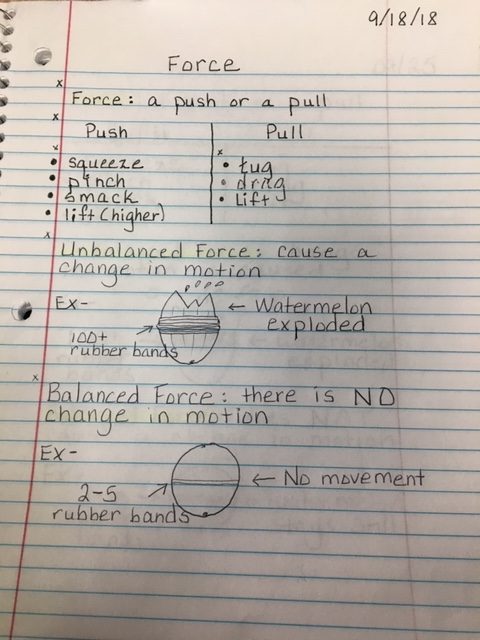 9/18/18
Force
Force: a push or a pull
Push Pull
• squeeze • tug
• pinch • drag
• smack • Lift
• lift (higher)
Unbalanced Force: cause a
change in motion
Ex- ← Watermelon
exploded
100+
rubber bands
Balanced Force: there is NO
change in motion
Ex-
← No movement
2-5
rubber bands